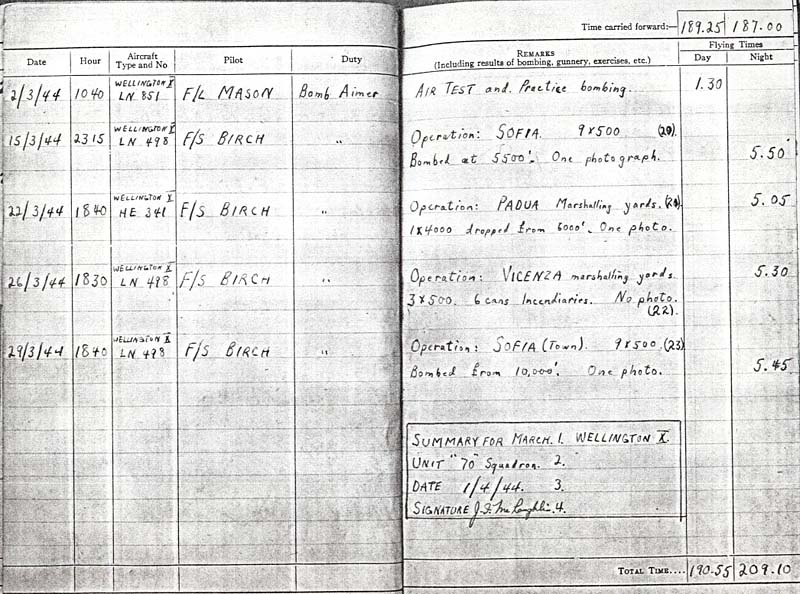 Time carried forward:— 189.25 187.00
Date Hour Aircraft Type and No Pilot Duty REMARKS (Including results of bombing, gunnery, exercises, etc.) Flying Times Day Night
2/3/44 1040 WELLINGTON X LN 851 F/L MASON Bomb Aimer AIR TEST and Practice bombing. 1.30
15/3/44 2315 WELLINGTON X LN 498 F/S BIRCH " Operation: SOFIA 9X500 (20)
Bombed at 5500'. One photograph. 5.50
22/3/44 1840 WELLINGTON X HE 341 F/S BIRCH " Operation: PADUA Marshalling yards. (21) 5.05
1X4000 dropped from 6000'. One photo.
26/3/44 1830 WELLINGTON X LN 498 F/S BIRCH " Operation: VICENZA marshalling yards. 5.30
3X500. 6 cans Incendiaries. No photo.
(22).
29/3/44 1840 WELLINGTON X LN 498 F/S BIRCH " Operation: SOFIA (Town). 9X500. (23)
Bombed from 10,000'. One photo. 5.45
SUMMARY FOR MARCH. 1. WELLINGTON X.
UNIT "70" Squadron. 2.
DATE 1/4/44. 3.
SIGNATURE J.F. McLaughlin. 4.
TOTAL TIME.... 190.55 209.10